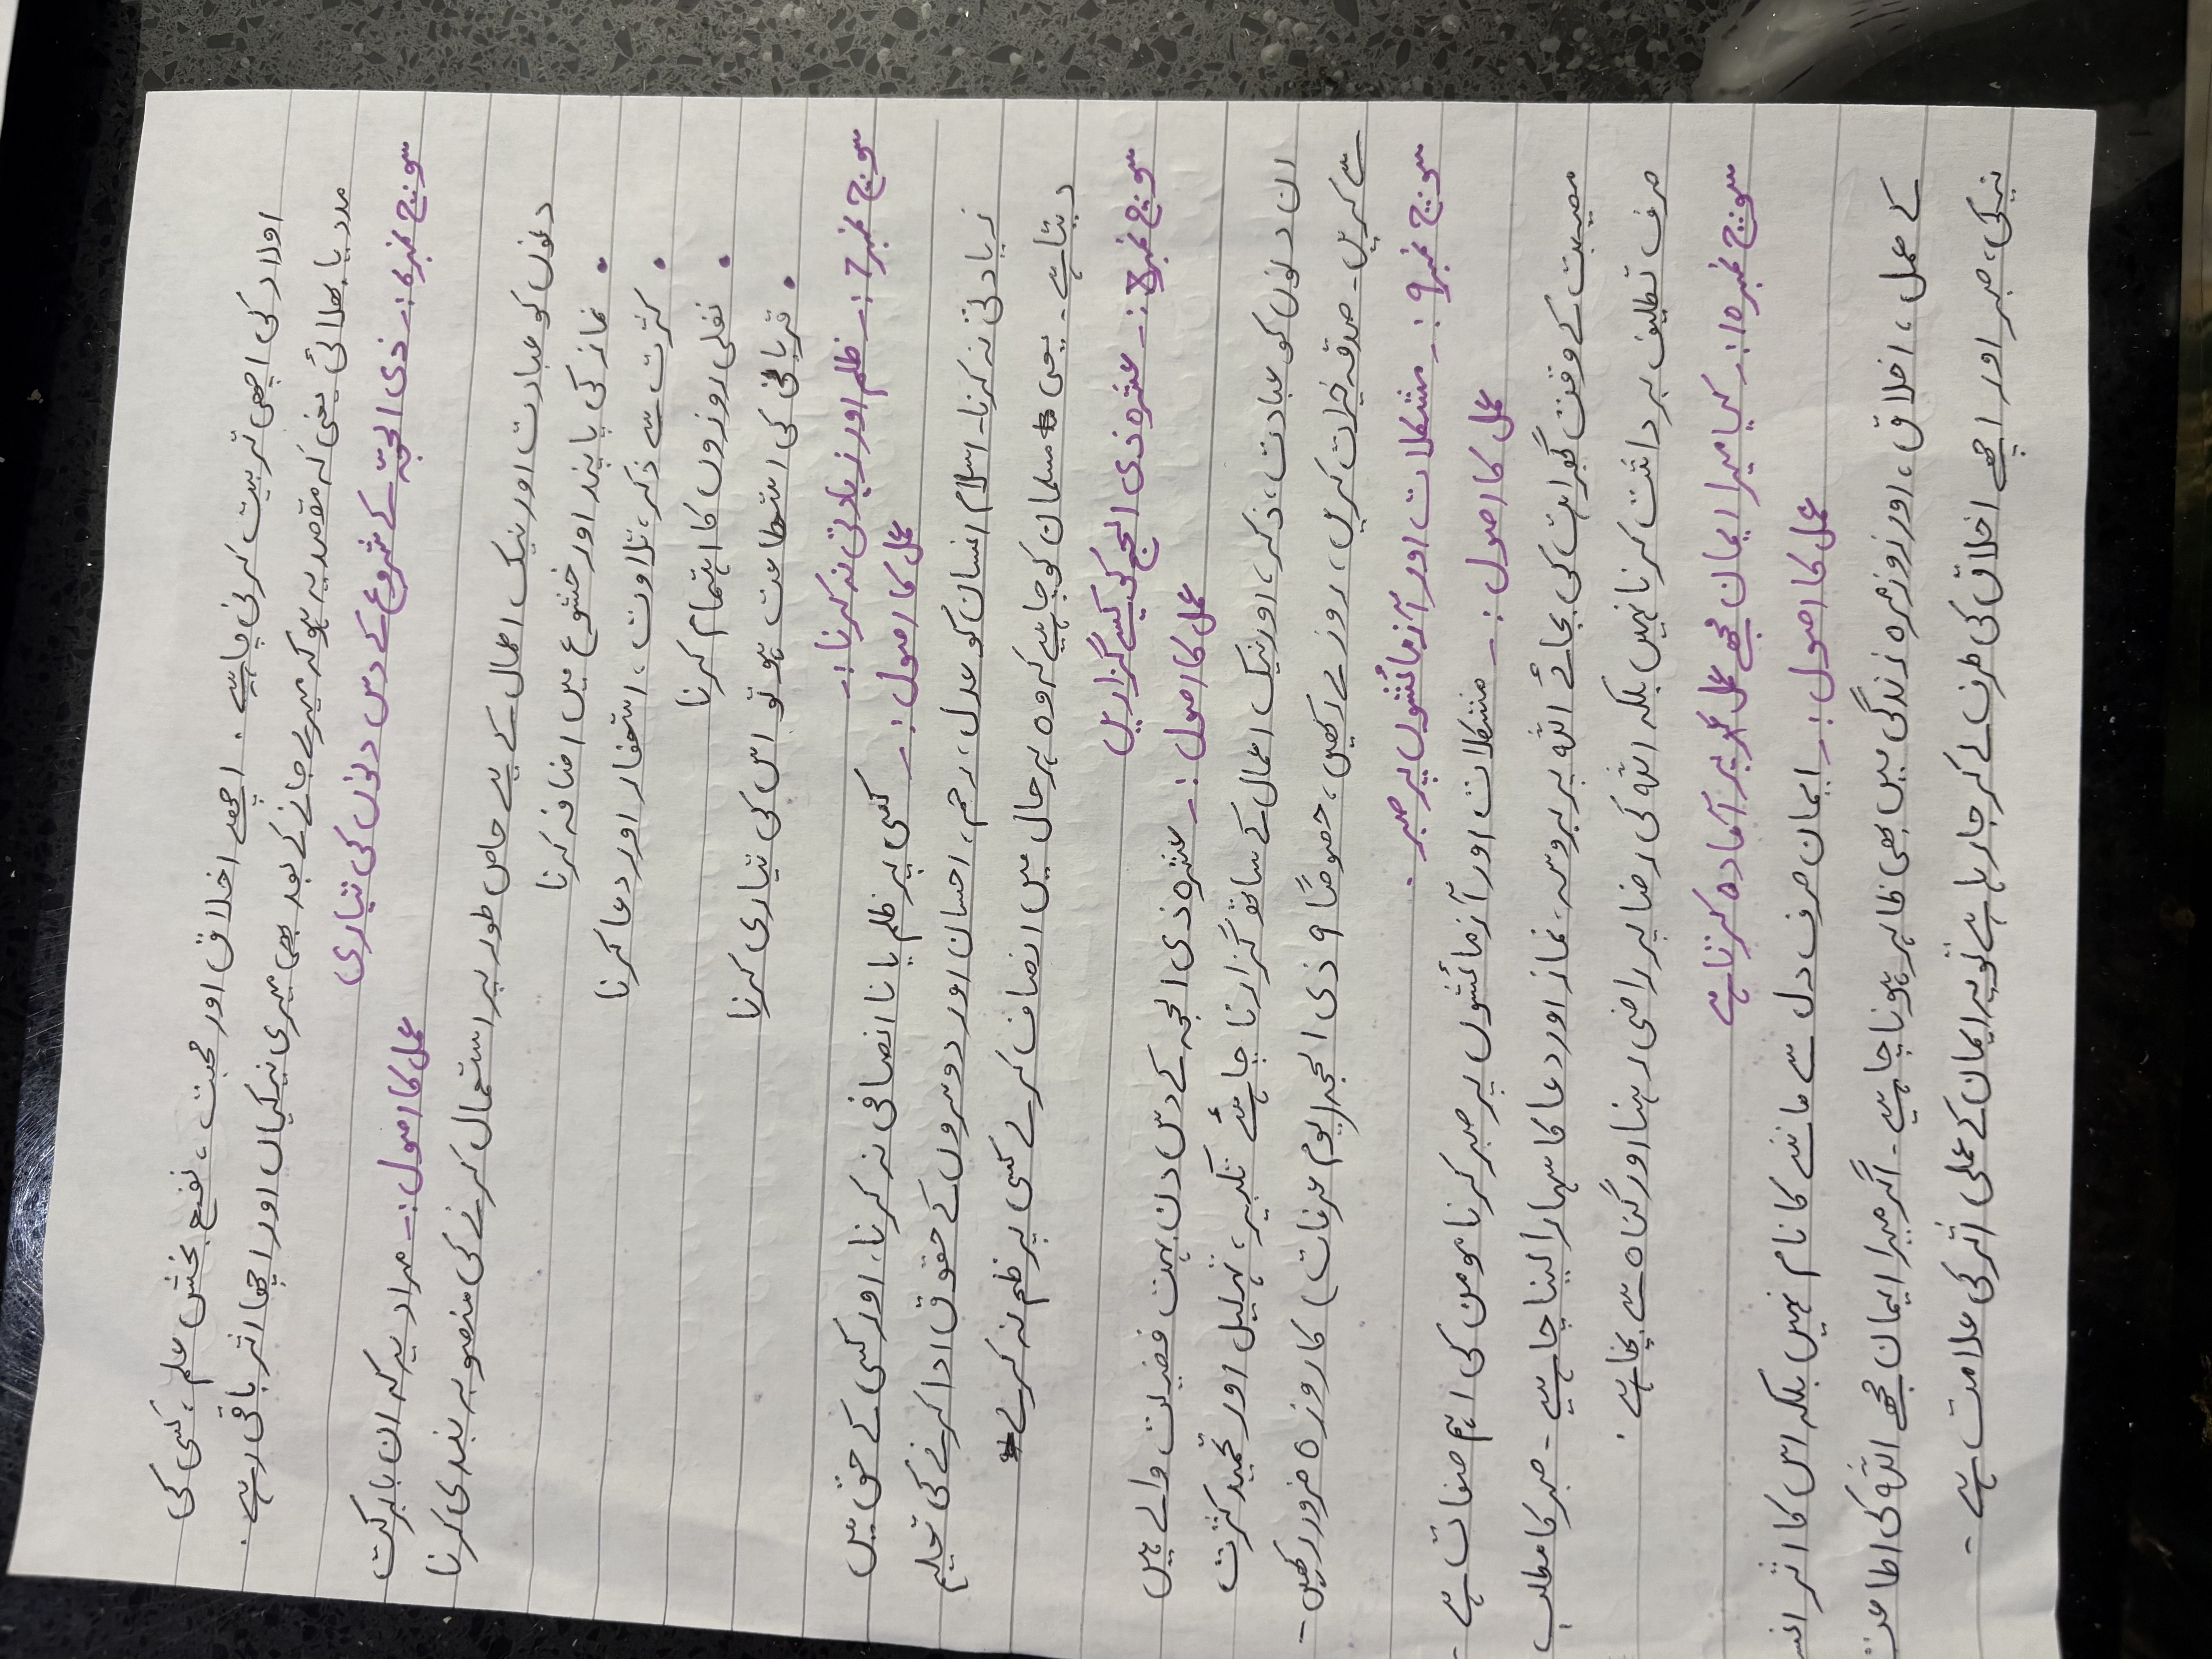 اولاد کی اچھی تربیت کرنی چاہیے۔ اچھے اخلاق اور محبت، نفع بخش علم، کسی کی
مدد یا بھلائی یعنی کہ مقصد یہ ہو کہ میرے جانے کے بعد بھی میری نیکیاں اور اچھا اثر باقی رہے۔
سوئچ نمبر 6:۔ ذی الحجّہ کے شروع کے دس دنوں کی تیاری
عمل کا اصول:۔ مراد یہ کہ ان بابرکت
دنوں کو عبادت اور نیک اعمال کے لیے خاص طور پر استعمال کرنے کی منصوبہ بندی کرنا
• نماز کی پابند اور خشوع میں اضافہ کرنا
• کثرت سے ذکر، تلاوت، استغفار اور دعا کرنا
• نفلی روزوں کا اہتمام کرنا
• قربانی کی استطاعت ہو تو اس کی تیاری کرنا
سوئچ نمبر 7:۔ ظلم اور زیادتی نہ کرنا:۔
عمل کا اصول:۔ کسی پر ظلم یا ناانصافی نہ کرنا، اور کسی کے حق میں
زیادتی نہ کرنا۔ اسلام انسان کو عدل، رحم، احسان اور دوسروں کے حقوق ادا کرنے کی تعلیم
دیتا ہے۔ یعنی مسلمان کو چاہیے کہ وہ ہر حال میں انصاف کرے کسی پر ظلم نہ کرے
سوئچ نمبر 8:۔ عشرہ ذی الحج کو کیسے گزاریں
عمل کا اصول:۔ عشرہ ذی الحجہ کے دس دن بہت فضیلت والے ہیں
ان دنوں کو عبادت، ذکر، اور نیک اعمال کے ساتھ گزارنا چاہئے تکبیر، تہلیل اور تحمید کثرت
سے کریں۔ صدقہ خیرات کریں، روزے رکھیں، خصوصًا 9 ذی الحجہ (یوم عرفات) کا روزہ ضرور رکھیں۔
سوئچ نمبر 9:۔ مشکلات اور آزمائشوں پر صبر۔
عمل کا اصول:۔ مشکلات اور آزمائشوں پر صبر کرنا مومن کی اہم صفات ہے۔
مصیبت کے وقت گھبراہٹ کی بجائے اللہ پر بھروسہ، نماز اور دعا کا سہارا لینا چاہیے۔ صبر کا مطلب
صرف تکلیف برداشت کرنا نہیں بلکہ اللہ کی رضا پر راضی رہنا اور گناہ سے بچنا ہے۔
سوئچ نمبر 10:۔ کیا میرا ایمان مجھے عمل پر آمادہ کرتا ہے
عمل کا اصول:۔ ایمان صرف دل سے ماننے کا نام نہیں بلکہ اس کا اثر
کے عمل، اخلاق، اور روزمرہ زندگی میں بھی ظاہر ہونا چاہیے۔ اگر میرا ایمان مجھے اللہ کی اطاعت
نیکی، صبر اور اچھے اخلاق کی طرف لے کر جا رہا ہے تو یہ ایمان کے عملی اثر کی علامت ہے۔